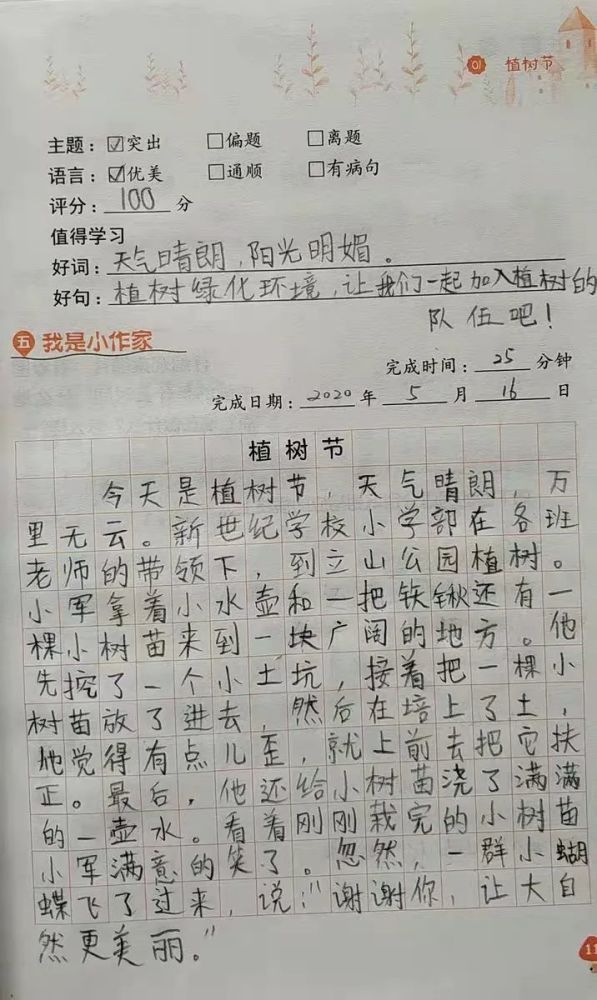 01 植树节
主题：☑突出 □偏题 □离题
语言：☑优美 □通顺 □有病句
评分：100分
值得学习
好词：天气晴朗，阳光明媚。
好句：植树绿化环境，让我们一起加入植树的
队伍吧！
五 我是小作家
完成时间：25分钟
完成日期：2020年5月16日
植树节
今天是植树节，天气晴朗，万
里无云。新世纪学校小学部在各班
老师的带领下，到立山公园植树。
小军拿着小水壶和一把铁锹还有一
棵小树苗来到一块广阔的地方。他
先挖了一个小土坑，接着把一棵小
树苗放了进去，然后在培上了土，
他觉得有点儿歪，就上前去把它扶
正。最后，他还给小树苗浇了满满
的一壶水。看着刚刚栽完的小树苗
小军满意的笑了。忽然，一群小蝴
蝶飞了过来，说：“谢谢你，让大自
然更美丽。”
11